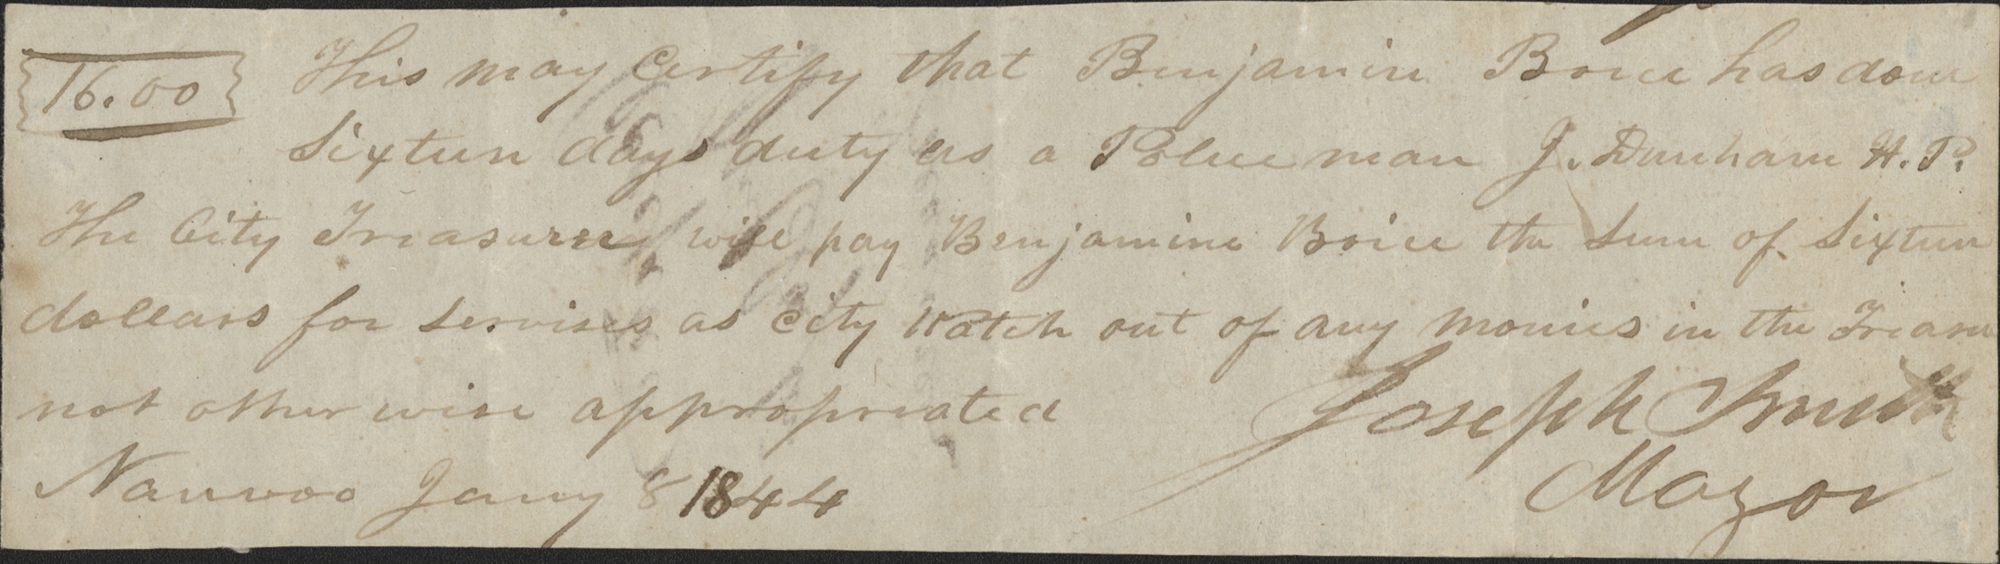 16.00 This may Certify that Benjamin Boice has done
Sixteen days duty as a Police man J. Dunham H. P.
The City Treasurer will pay Benjamine Boice the Sum of Sixteen
dollars for Servises as City Watch out of any monies in the Treasu
not other wise appropreated Joseph Smith
Nauvoo Jany 8 1844 Mayor